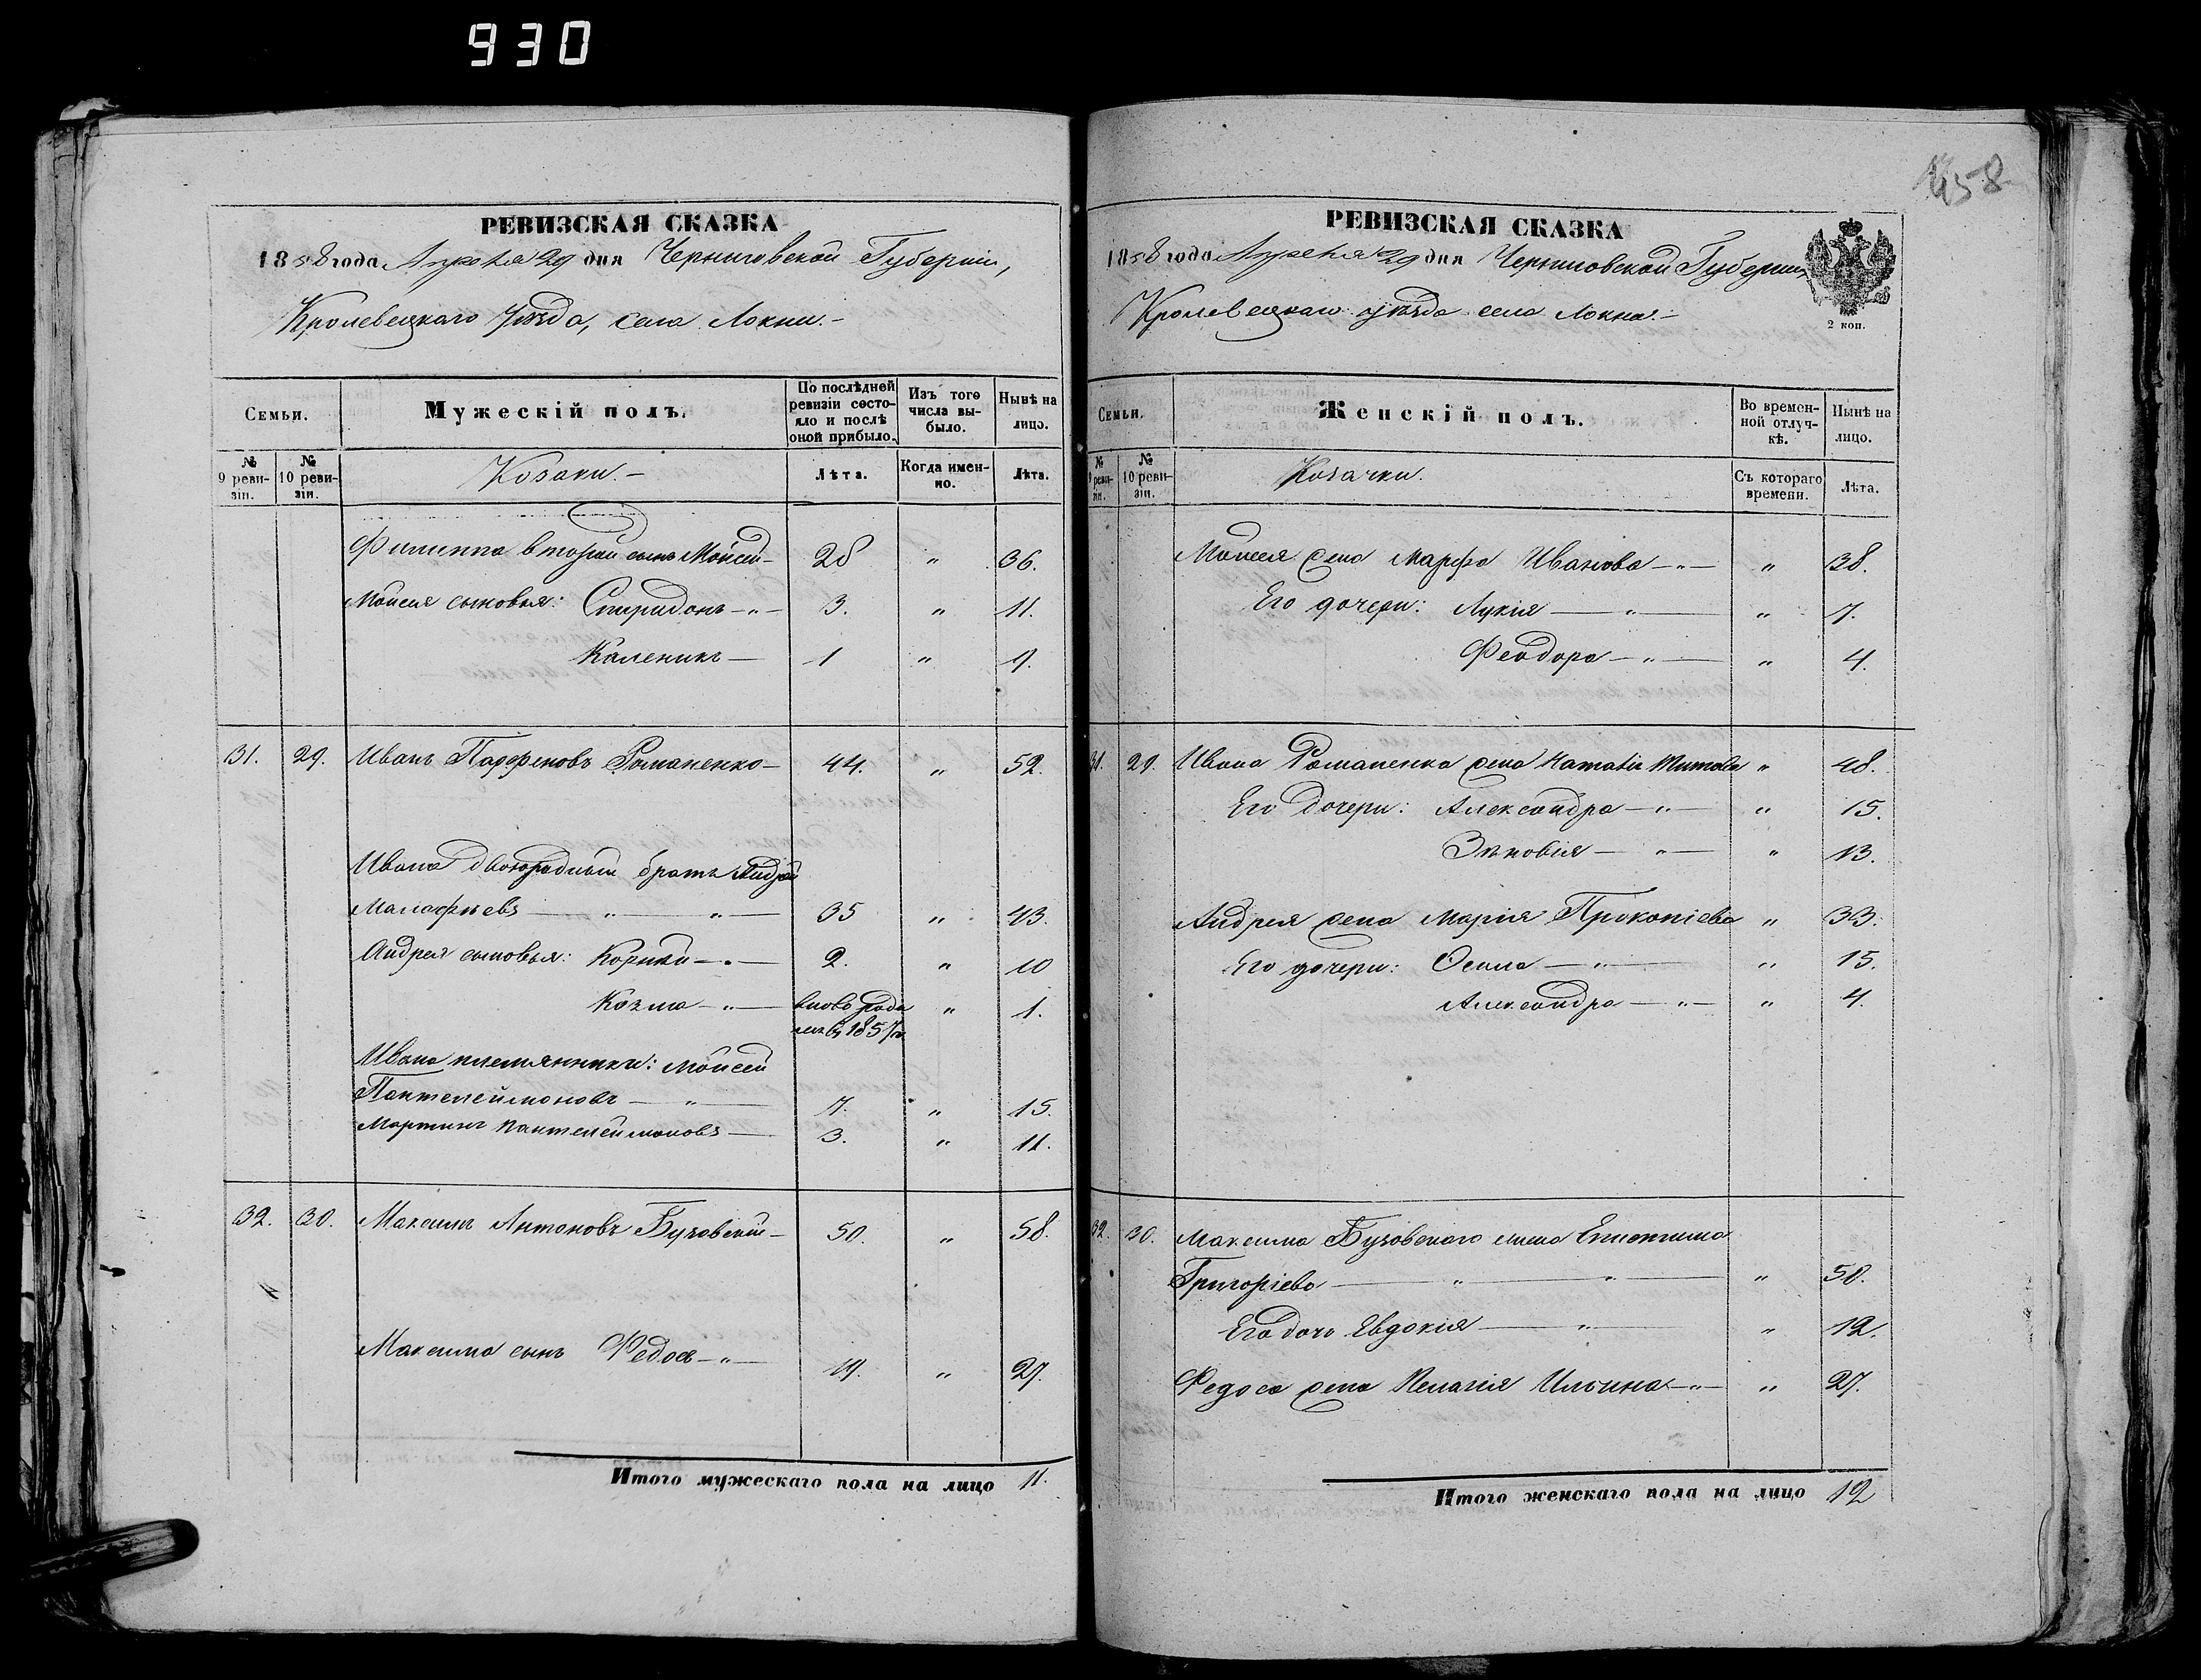 930
458
РЕВИЗСКАЯ СКАЗКА
1858 года Апреля 29 дня Черниговской Губернии,
Кролевецкаго Уѣзда, села Локни.-
Семьи.
Мужескій полъ.
По послѣдней ревизіи состояло и послѣ оной прибыло.
Изъ того числа выбыло.
Нынѣ на лицо.
№ 9 ревизіи.
№ 10 ревизіи.
Козаки.-
Лѣта.
Когда именно.
Лѣта.
Филиппа второй сынъ Мойсей- 28 " 36.
Мойсея сыновья: Спиридонъ-"- 3. " 11.
Каленикъ- 1 " 9.
31. 29. Иванъ Парфеновъ Романенко- 44. " 52.
Ивана двоюродный братъ Андрей
Малафѣевъ-"-"- 35 " 43.
Андрея сыновья: Корнѣй-"- 2. " 10
Козма-"- вновь роди " 1.
лся въ 1857 г.
Ивана племянники: Мойсей
Пантелеймоновъ-"- 7. " 15.
Мартинъ Пантелеймоновъ- 3. " 11.
32. 30. Максимъ Антоновъ Бузовскій- 50. " 58.
Максима сынъ Федос-"- 19. " 27.
Итого мужескаго пола на лицо 11.
РЕВИЗСКАЯ СКАЗКА
1858 года Апреля 29 дня Черниговской Губернии
Кролевецкаго уѣзда села Локни.-
2 коп.
Семьи.
Женскій полъ.
Во временной отлучкѣ.
Нынѣ на лицо.
№ 9 ревизіи.
№ 10 ревизіи.
Козачки.
Съ котораго времени.
Лѣта.
Мойсея жена Марфа Иванова-"- " 38.
Его дочери: Лукія-"- " 7.
Феодора-"- " 4.
31. 29. Ивана Романенка жена Наталія Титова " 48.
Его дочери: Александра-"- " 15.
Зѣновія-"- " 13.
Андрея жена Марія Прокопіева " 33.
Его дочери: -"- " 15.
Александра-"- " 4.
32. 30. Максима Бузовскаго жена
Григоріева-"-"- " 50.
Его дочь Евдокія-"- " 12.
Федоса жена Пелагія Ильина-"- " 27.
Итого женскаго пола на лицо 12